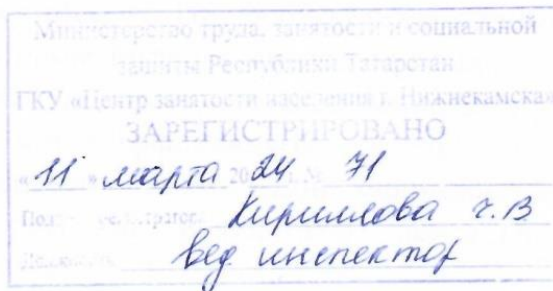 Министерство труда, занятости и социальной
защиты Республики Татарстан
ГКУ «Центр занятости населения г. Нижнекамска»
ЗАРЕГИСТРИРОВАНО
«11» марта 2024 г. № 71
Кириллова г. В
вед инспектор